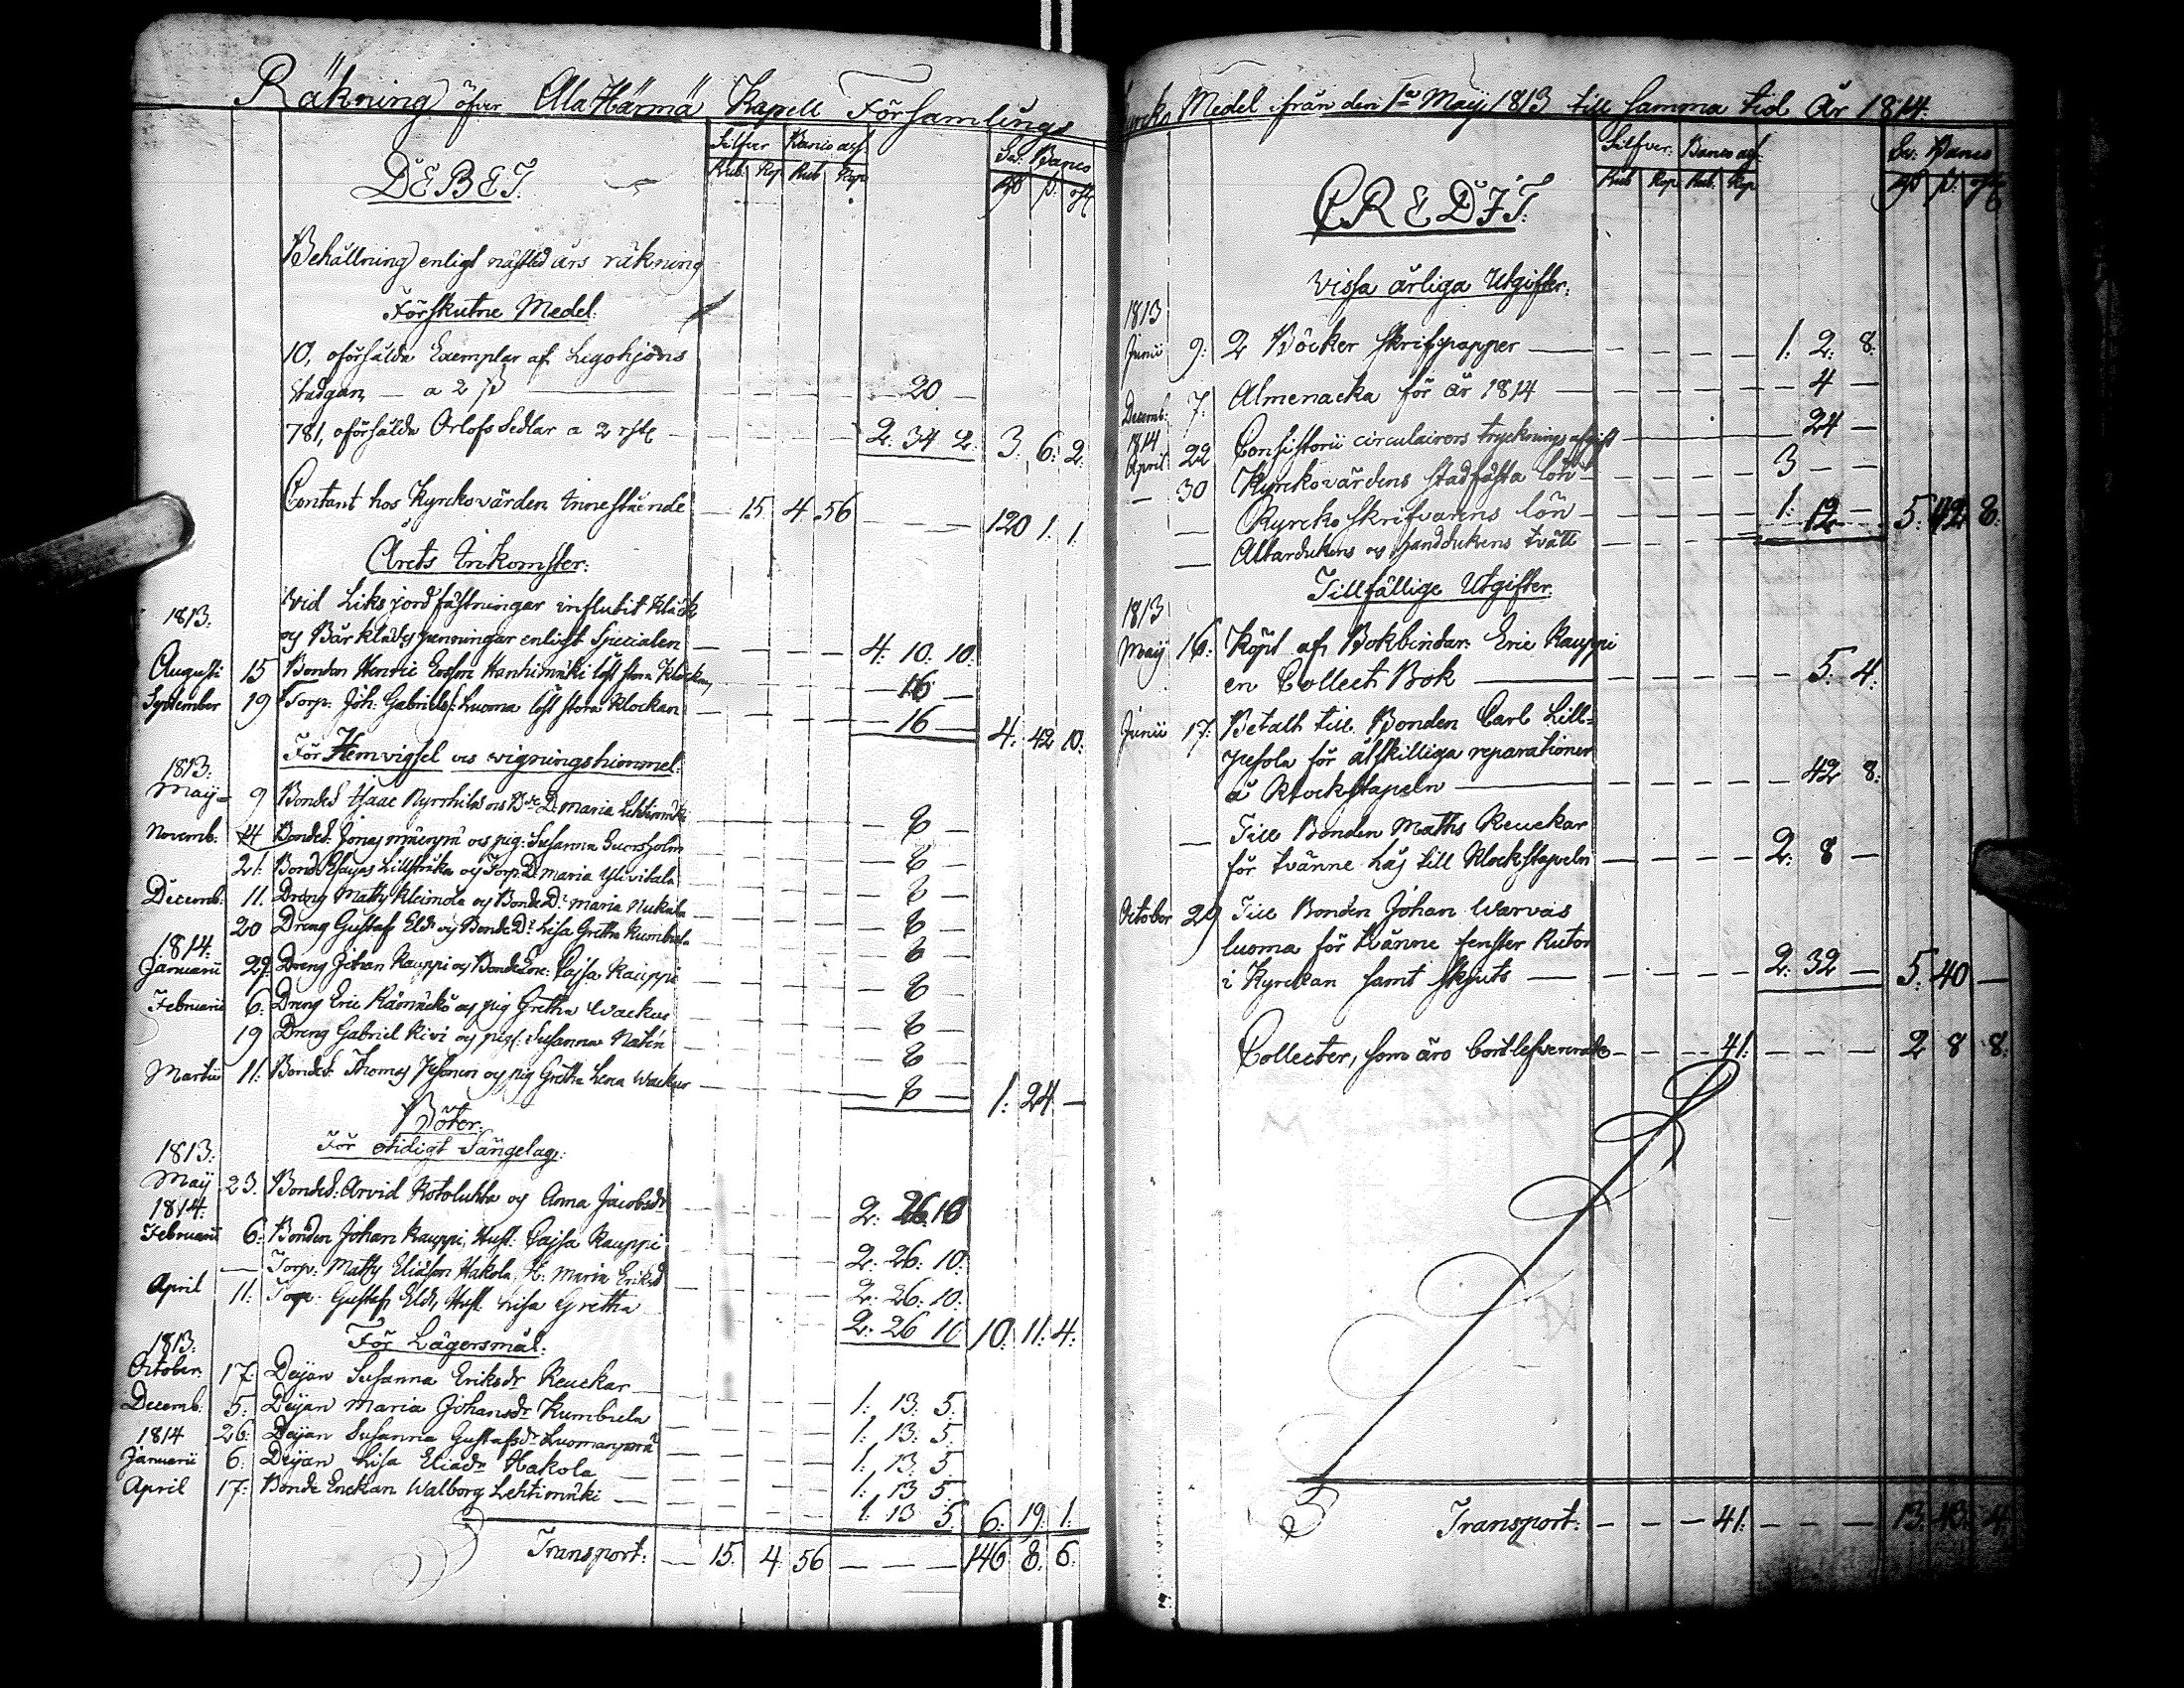 Räkning öfver Ala Härmä Kapell Församlings
Silfver Banco ass: Sv: Banco
Rub. Kop Rub Kop
DEBET.
Behållning enligt nästled års räkning
Förskutne Medel.
10, oförsålda Exemplar af Legohjons
stadgan — a 2 ß — 20 —
781, oförsålda Orlofs Sedlar a 2 rst 2. 34 2. 3. 6. 2.
Contant hos Kyrckovärden innestående — 15. 4. 56 — — — 120 1. 1.
Årets Inkomster:
1813: Vid Liks jordfästningar influtit Klåck
og Bår kläds penningar enligt Specialen — 4. 10. 10.
Augusti 15 Bonden Henric Ersson Hantumäki löst stora Klockan — 16 —
September 19 Torp: Joh: Gabriels: Luoma löst stora Klockan — 16 — 4. 42 10.
För Hemvigsel och wigningshimmel:
1813:
Maÿ 9 Bondes. Isaac Nyrrhilä och Bde D: Maria Lehtimäki — 8 —
Novemb: 14 Bondes. Jonas mäenpä och pig: Susanna — 8 —
21. Bond Lillstrika og Torp D: Maria Ylivitala — 8 —
Decemb. 11. Dreng Matts Kleimola og Bonde Dr Maria Nukala — 8 —
20 Dreng Gustaf Eld og Bonde Dr Lisa Gretha Kumbula — 8 —
1814:
Januarii 29. Dreng Johan Kauppi og Bonde Enc: Cajsa Kauppi — 8 —
Februarii 6. Dreng Eric og pig Gretha Wackur — 8 —
19 Dreng Gabriel Kivi og pig: Susanna — 8 —
Martii 11. Bondes. Thomas og pig Gretha Lena Wackur — 8 — 1. 24 —
Böter.
För otidigt Sängelag:
1813:
Maÿ 23. Bondes: Arvid Kotoluhta og Anna Jacobsdr 2. 26. 10
1814:
Februarii 6. Bonden Johan Kauppi, Hust: Cajsa Kauppi 2. 26. 10.
— Torp: Matts Eliasson Hakola, H: Maria Eriksd 2. 26. 10.
April 11. Torp: Gustaf Eld, Hust Lisa Gretha 2. 26 10 10. 11. 4.
För Lägersmål:
1813:
October 17. Pejan Susanna Eriksdr Reuckar — 1. 13. 5.
Decemb. 5. Pejan Maria Johansdr Kumbula 1. 13. 5.
1814 26. Pejan Susanna Gustafsdr Luomanperä 1. 13. 5
Januarii 6. Pejan Lisa Eliadr Hakola 1. 13 5.
April 17. Bonde Enckan Walborg Lehtimäki — 1. 13 5. 6. 19. 1.
Transport: — 15. 4. 56 — — — 146 8. 6.
Kyrcko Medel ifrån den 1a Maÿ 1813 till samma tid År 1814.
Silfver: Banco ass: Sv: Banco
Rub Kop. Rub. Kop
CREDIT.
Vissa årliga Utgifter:
1813
Junii 9. 2 Böcker Skrifpapper — 1. 2. 8.
Decemb: 7. Almenacka för år 1814 — 4 —
1814
April 22 Consistorii circulairers trycknings afgift — 24 —
— 30 Kyrckovärdens stadfästa lön — 3 — —
— Kyrcko skrifvarens lön — 1. 12 —
— Altardukens og handdukens tvätt — 12 — 5. 42. 8.
Tillfällige Utgifter.
1813
Maÿ 16. Köpt af Bokbindar: Eric Kauppi
en Collect: Bok — 5. 4.
Junii 17. Betalt till Bonden Carl Lill-
för åtskilliga reparationer
å Klockstapeln — 42 8.
— Till Bonden Matts Reuckar
för tvänne Lås till Klockstapeln — 2. 8 —
October 29 Till Bonden Johan Warvas
luoma för tvänne fenster Rutor
i Kyrckan samt skjuts — 2. 32 — 5. 40 —
Collecter, som äro bortlefvererade — — — 41. — — — 2 8 8.
Transport: — — — 41. — — — 13. 43. 4.